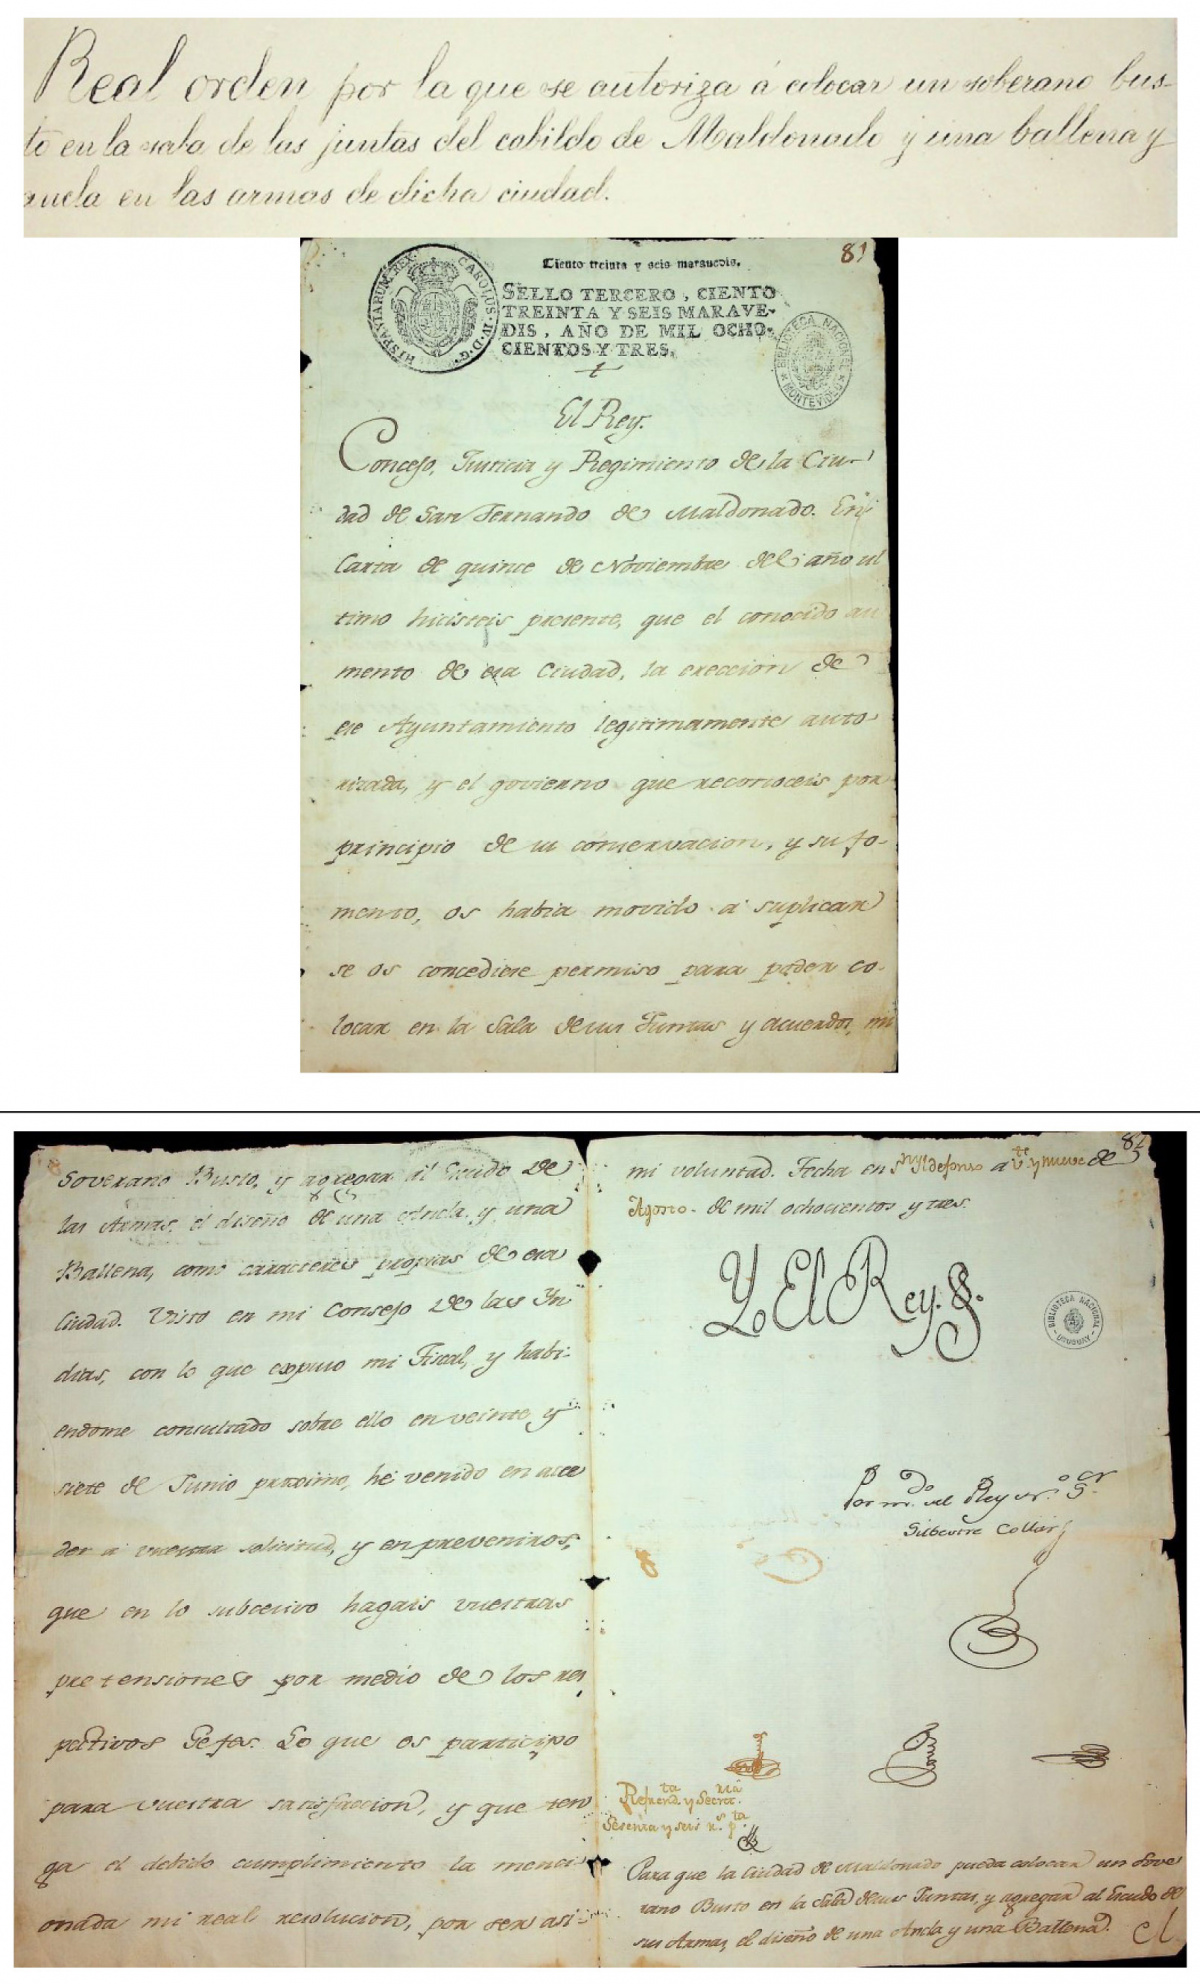 Real orden por la que se autoriza á colocar un soberano bus-
to en la sala de las juntas del cabildo de Maldonado y una ballena y
ancla en las armas de dicha ciudad.
Ciento treinta y seis marauedis.
81
HISPANIARUM REX. CAROLUS IV D.G.
SELLO TERCERO, CIENTO
TREINTA Y SEIS MARAVE-
DIS, AÑO DE MIL OCHO-
CIENTOS Y TRES.
BIBLIOTECA NACIONAL
MONTEVIDEO
El Rey.
Concejo, Justicia y Regimiento de la Ciu-
dad de San Fernando de Maldonado. En
Carta de quince de Noviembre del año ul
timo hicisteis presente, que el conocido au
mento de esa Ciudad, la ereccion de
ese Ayuntamiento legitimamente auto-
rizada, y el govierno que reconoceis por
principio de su conservacion, y su fo-
mento, os habia movido á suplicar
se os concediese permiso para poder co-
locar en la Sala de sus Juntas y acuerdos, mi
82
Soverano Busto, y agregar al Escudo de
las Armas, el diseño de una Ancla y una
Ballena, como caracteres propias de esa
Ciudad. Visto en mi Consejo de las Yn
dias, con lo que expuso mi Fiscal, y habi-
endome consultado sobre ello en veinte y
siete de Junio proximo, hé venido en acce
der á vuestra solicitud, y en preveniros,
que en lo subcesivo hagais vuestras
pretensiones por medio de los res
pectivos Gefes. Lo que os participo
para vuestra satisfaccion, y que ten
ga el debido cumplimiento la menci
onada mi real resolucion, por ser asi
mi voluntad. Fecha en Sn Yldefonso a vte y nueve de
Agosto de mil ochocientos y tres.
Yo El Rey.
BIBLIOTECA NACIONAL
URUGUAY
Por mdo del Rey nro Sor
Silvestre Collar
Refrendta y Secretria
Sesenta y seis rs pta
Para que la Ciudad de Maldonado pueda colocar un Sove
rano Busto en la Sala de sus Juntas, y agregar al Escudo de
sus Armas, el diseño de una Ancla y una Ballena.